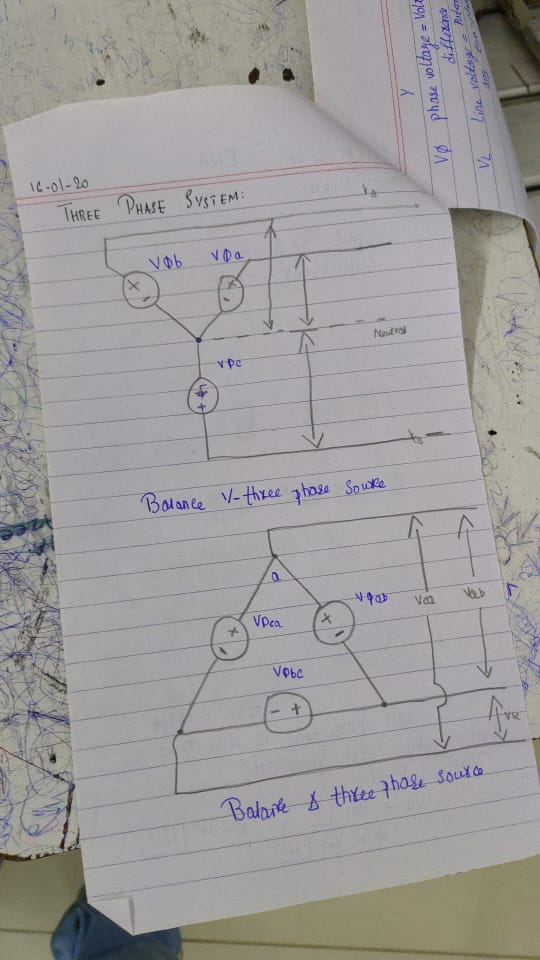 16-01-20
THREE PHASE SYSTEM:
VΦb VΦa
Neutral
VΦc
Balance Y-three phase source
a
VΦca
VΦab
Vca
Vab
VΦbc
Balance Δ three phase source
Y
VΦ phase voltage =
difference
VL Line voltage =